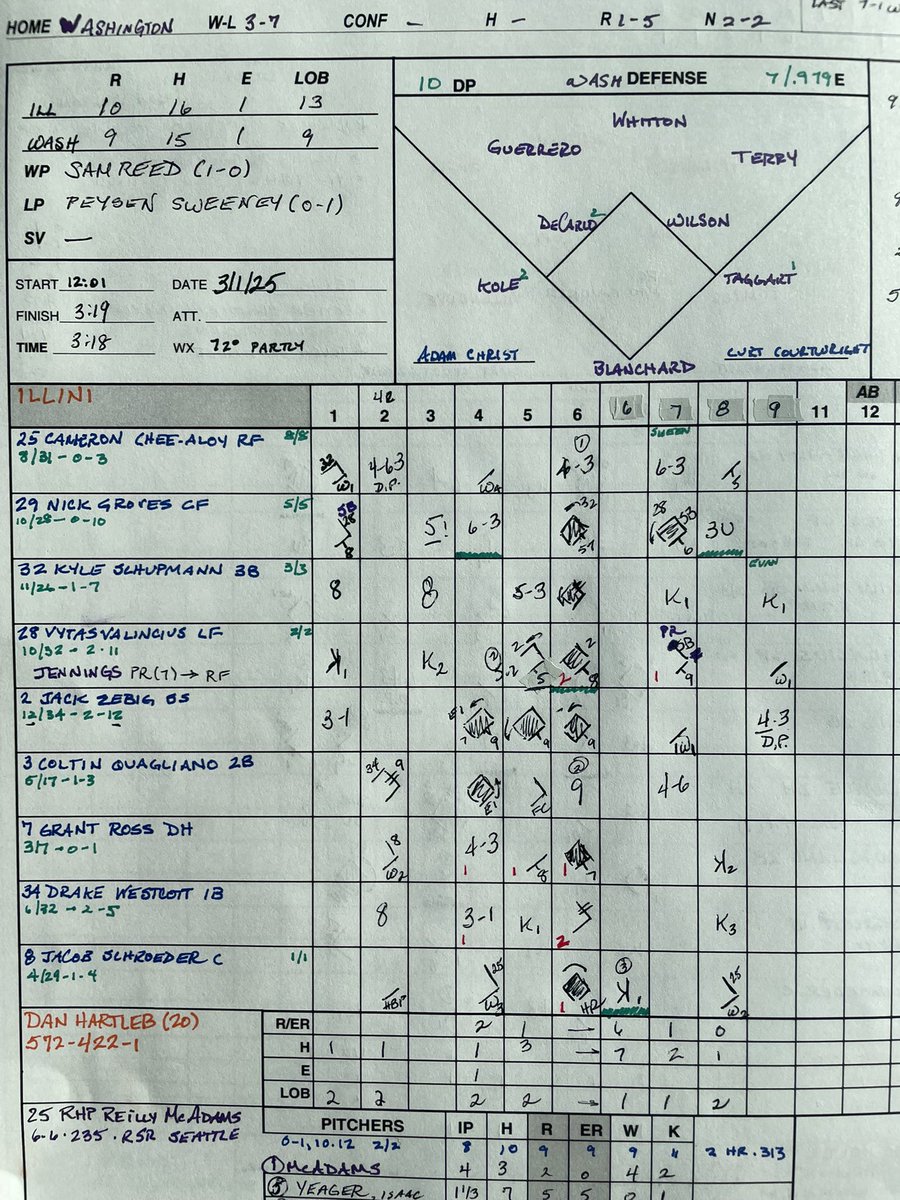 HOME WASHINGTON W-L 3-7 CONF - H - R 1-5 N 2-2
R H E LOB
ILL 10 16 1 13
WASH 9 15 1 9
WP SAM REED (1-0)
LP PEYSEN SWEENEY (0-1)
SV —
START 12:01 DATE 3/1/25
FINISH 3:19 ATT.
TIME 3:18 WX 72° PARTLY
10 DP WASH DEFENSE 7/.979 E
WHITTON
GUERRERO
TERRY
DECARLO 2
WILSON
KOLE 2
TAGGART 1
ADAM CHRIST
CURT COURTWRIGHT
BLANCHARD
ILLINI
1 2 3 4 5 6 6 7 8 9 11 12
AB
25 CAMERON CHEE-ALOY RF 8/8
8/31-0-3
32 W1 4-63 D.P. 6-3 6-3
29 NICK GROVES CF 5/5
10/28-0-10
SB 28 8 5! 6-3 32 28 SB 6 3U
32 KYLE SCHUPMANN 3B 3/3
11/26-1-7
8 8 5-3 K1 K1
28 VYTAS VALINCIUS LF 2/2
10/32-2-11
JENNINGS PR(7) → RF
K1 K2 PR SB 1 9 W1
2 JACK ZEBIG SS
12/34-2-12
3-1 4-3 D.P.
3 COLTIN QUAGLIANO 2B
5/17-1-3
34 9 9 4-6
7 GRANT ROSS DH
3/7-0-1
8 W2 4-3 1 1 8 1 7 K2
34 DRAKE WESTCOTT 1B
6/32-2-5
8 3-1 1 K1 2 K3
8 JACOB SCHROEDER C 1/1
4/29-1-4
HBP 25 W3 1 HR K1 25 W2
DAN HARTLEB (20)
572-422-1
R/ER 2 1 → 6 1 0
H 1 1 1 3 → 7 2 1
E 1
LOB 2 2 2 2 → 1 1 2
25 RHP REILLY MCADAMS
6-6-235-RSR SEATTLE
PITCHERS IP H R ER W K
0-1, 10.12 2/2 8 10 9 9 9 11 2 HR .313
1 MCADAMS 4 3 2 0 4 2
5 YEAGER, ISAAC 1 1/3 7 5 5 0 1